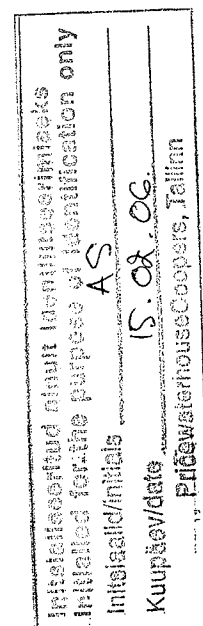 Initsialiseeritud ainult identifitseerimiseks
Initialled for the purpose of identification only
Initsiaalid/initials AS
Kuupäev/date 15.02.06.
PricewaterhouseCoopers, Tallinn